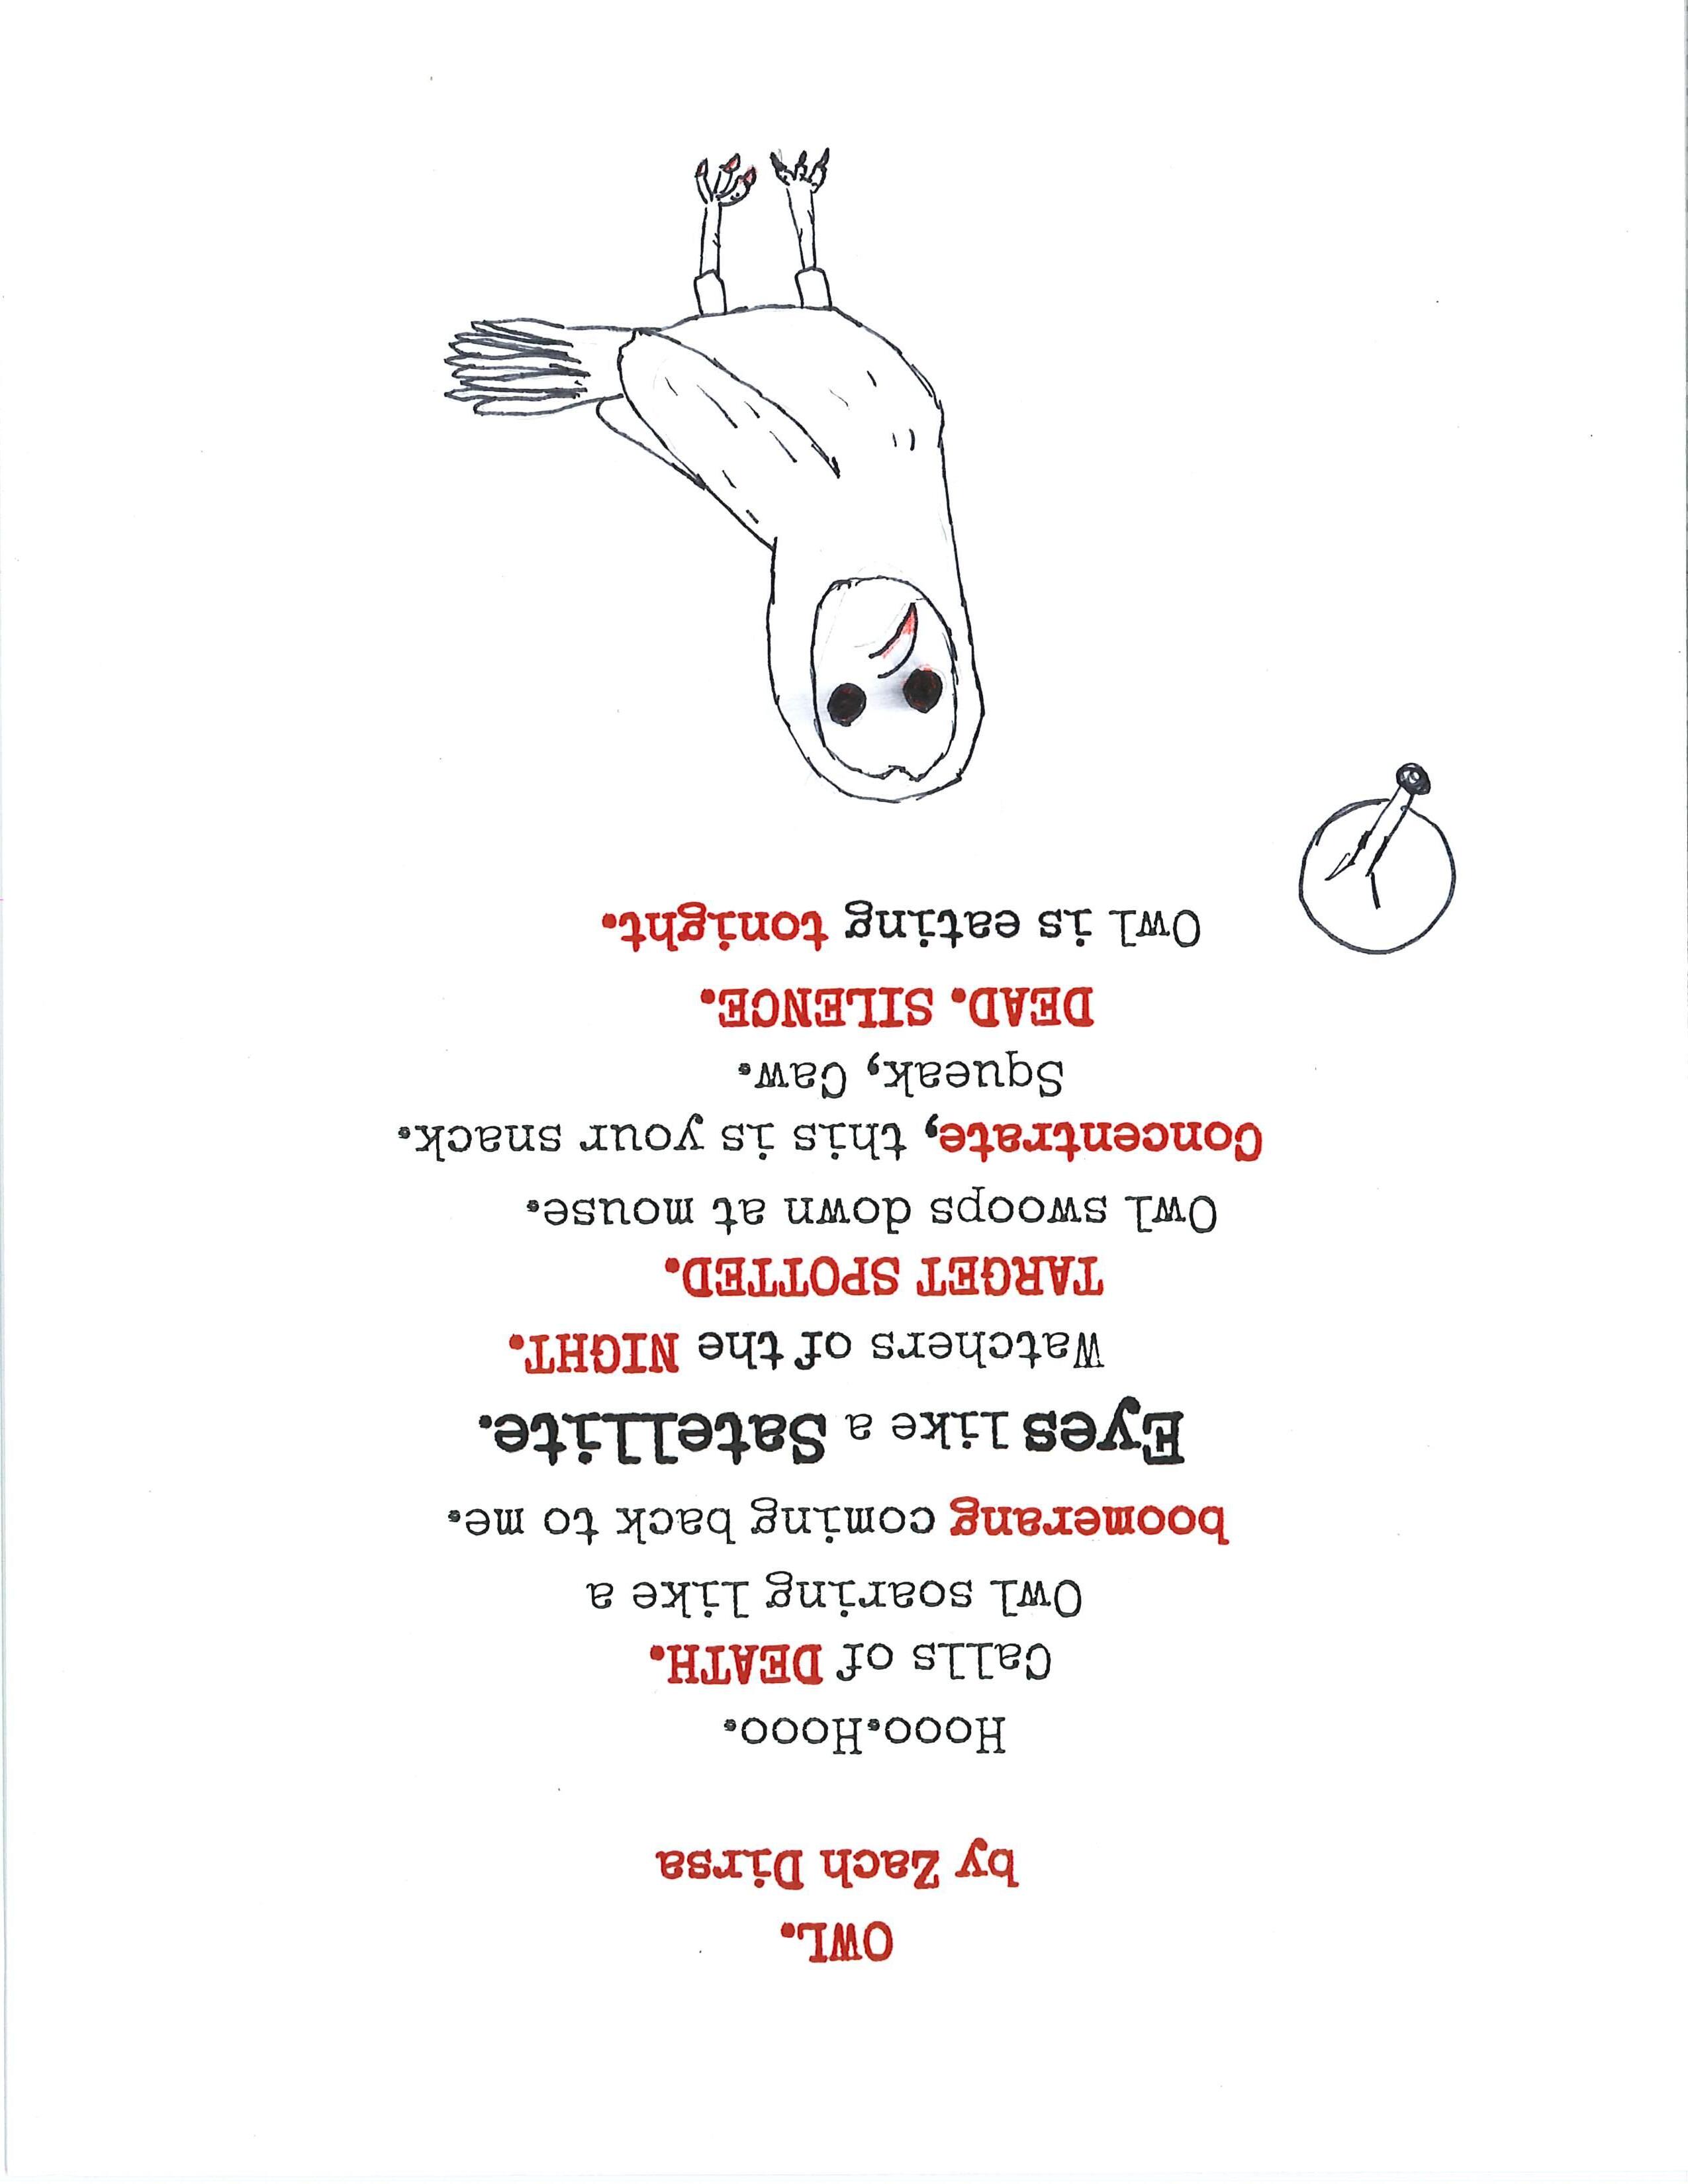 OWL.
by Zach Dirsa
Hooo.Hooo.
Calls of DEATH.
Owl soaring like a
boomerang coming back to me.
Eyes like a Satellite.
Watchers of the NIGHT.
TARGET SPOTTED.
Owl swoops down at mouse.
Concentrate, this is your snack.
Squeak, Caw.
DEAD. SILENCE.
Owl is eating tonight.